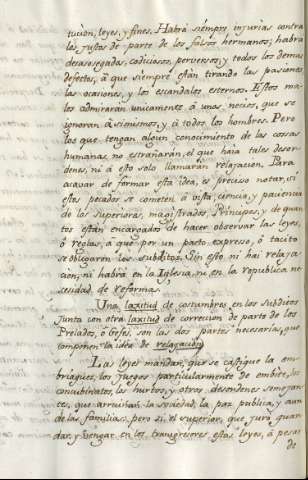 tucion, leyes, y fines. Habrá siempre injurias contra
los justos de parte de los falsos hermanos; habrá
desasosegados, codiciosos, perversos, y todos los demas
defectos, á que siempre están tirando las pasiones
las ocasiones, y los escandalos externos. Estos ma-
les admirarán unicamente á unos necios, que se
ignoran á simismos, y á todos los hombres. Pero
los que tengan algun conocimiento de las cosas
humanas, no estrañarán, el que haia tales desor-
denes, ni á esto solo llamarán relajacion. Para
acavar de formar esta idea, es preciso notar, si
estos pecados se cometen á vista, ciencia, y paciencia
de los Superiores, magistrados, Principes, y de quan-
tos están encargados de hacer observar las leyes,
ó reglas, á que por un pacto expreso, ó tacito
se obligaron los subditos. Sin esto ni hai relaxa-
cion, ni habrá en la Iglesia, ni en la republica ne-
cesidad de Reforma.
Una laxitud de costumbres en los subditos
junta con otra laxitud de correccion de parte de los
Prelados, ó Gefes, son las dos partes necesarias, que
componen la idea de relajacion.
Las leyes mandan, que se castigue la em-
briaguez, los juegos particularmente de embite, los
concubinatos, los hurtos, y otros desordenes semejan-
tes, que arruinan la sociedad, la paz publica, y aun
de las familias: pero si el superior, que juró guar-
dar, y vengar en los transgresores estas leyes, á pesar
de